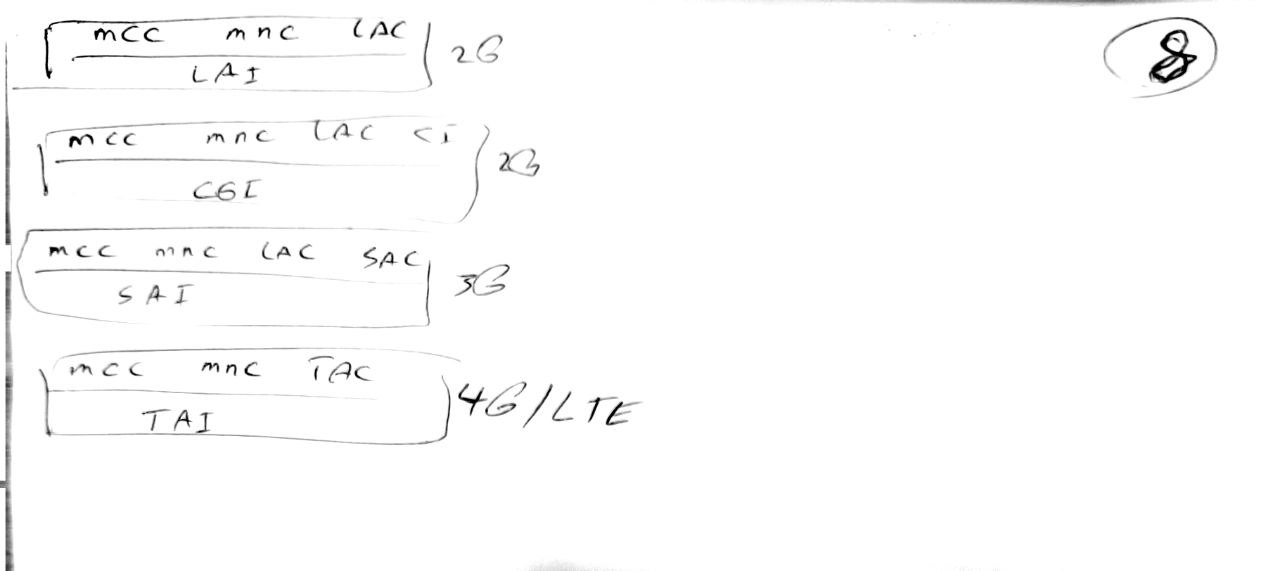 8
mcc mnc LAC
LAI
2G
mcc mnc LAC CI
CGI
2G
mcc mnc LAC SAC
SAI
3G
mcc mnc TAC
TAI
4G/LTE